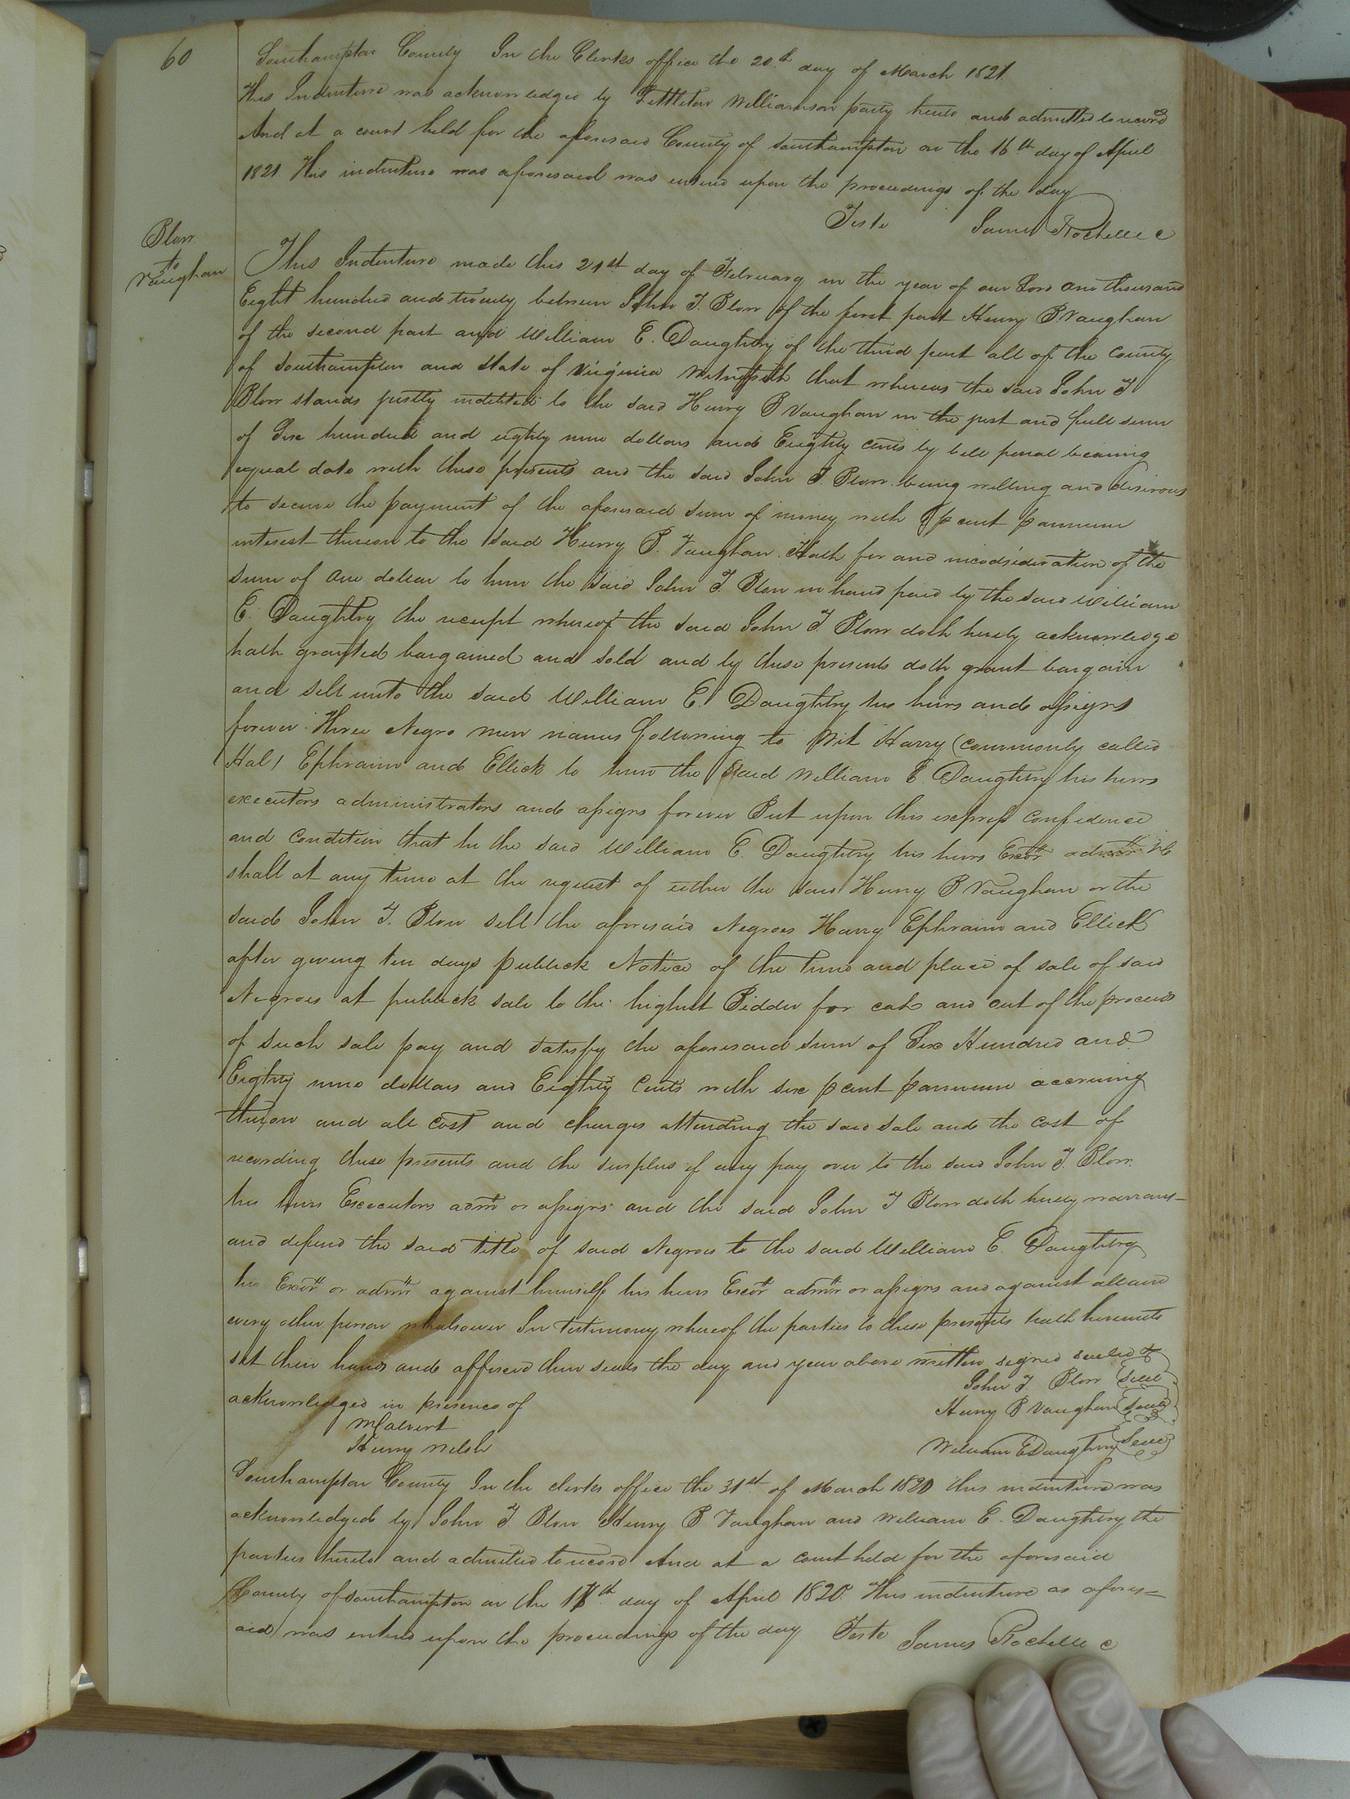 60
Southampton County In the Clerks office the 20th day of March 1821
This Indenture was acknowledged by Littleton Williamson party hereto and admitted to record
And at a court held for the aforesaid County of Southampton on the 16th day of April
1821 This indenture was aforesaid was entered upon the proceedings of the day
Teste James Rochelle C
Blow
to
Vaughan
This Indenture made this 21st day of February in the year of our Lord one thousand
Eight hundred and twenty between John T. Blow of the first part Henry B Vaughan
of the second part and William E. Daughtry of the third part all of the County
of Southampton and State of Virginia Witnesseth that whereas the said John T
Blow stands justly indebted to the said Henry B Vaughan in the just and full sum
of Six hundred and eighty nine dollars and Eighty cents by bill penal bearing
equal date with these presents and the said John T Blow being willing and desirous
to secure the payment of the aforesaid sum of money with 6 p cent p annum
interest thereon to the said Henry B. Vaughan Hath for and inconsideration of the
sum of one dollar to him the said John T. Blow in hand paid by the said William
E. Daughtry the receipt whereof the said John T Blow doth hereby acknowledge
hath granted bargained and sold and by these presents doth grant bargain
and sell unto the said William E. Daughtry his heirs and assigns
forever Three Negro men names following to Wit Harry (commonly called
Hal) Ephraim and Ellick to him the said William E Daughtry his heirs
executors administrators and assigns forever But upon this express confidence
and condition that he the said William E. Daughtry his heirs Exors admors &c
shall at any time at the request of either the said Henry B Vaughan or the
said John T. Blow sell the aforesaid Negroes Harry Ephraim and Ellick
after giving ten days publick Notice of the time and place of sale of said
Negroes at publick sale to the highest Bidder for cash and out of the proceeds
of such sale pay and satisfy the aforesaid sum of Six Hundred and
Eighty nine dollars and Eighty Cents with six p cent p annum accruing
thereon and all cost and charges attending the said sale and the cost of
recording these presents and the surplus if any pay over to the said John T. Blow
his heirs Executors admr or assigns and the said John T Blow doth hereby warrant
and defend the said title of said Negroes to the said William E. Daughtry
his Exors or admrs against himself his heirs Exors admrs or assigns and against all and
every other person whatsoever In testimony whereof the parties to these presents hath hereunto
set their hands and affixed their seals the day and year above written signed sealed &
acknowledged in presence of
John T Blow Seal
Henry B Vaughan Seal
William E Daughtry Seal
M Calvert
Henry Welsh
Southampton County In the clerks office the 31st of March 1820 this indenture was
acknowledged by John T Blow Henry B Vaughan and William E. Daughtry the
parties hereto and admitted to record And at a court held for the aforesaid
County of Southampton on the 17th day of April 1820 This indenture as afores=
aid was entered upon the proceedings of the day Teste James Rochelle C